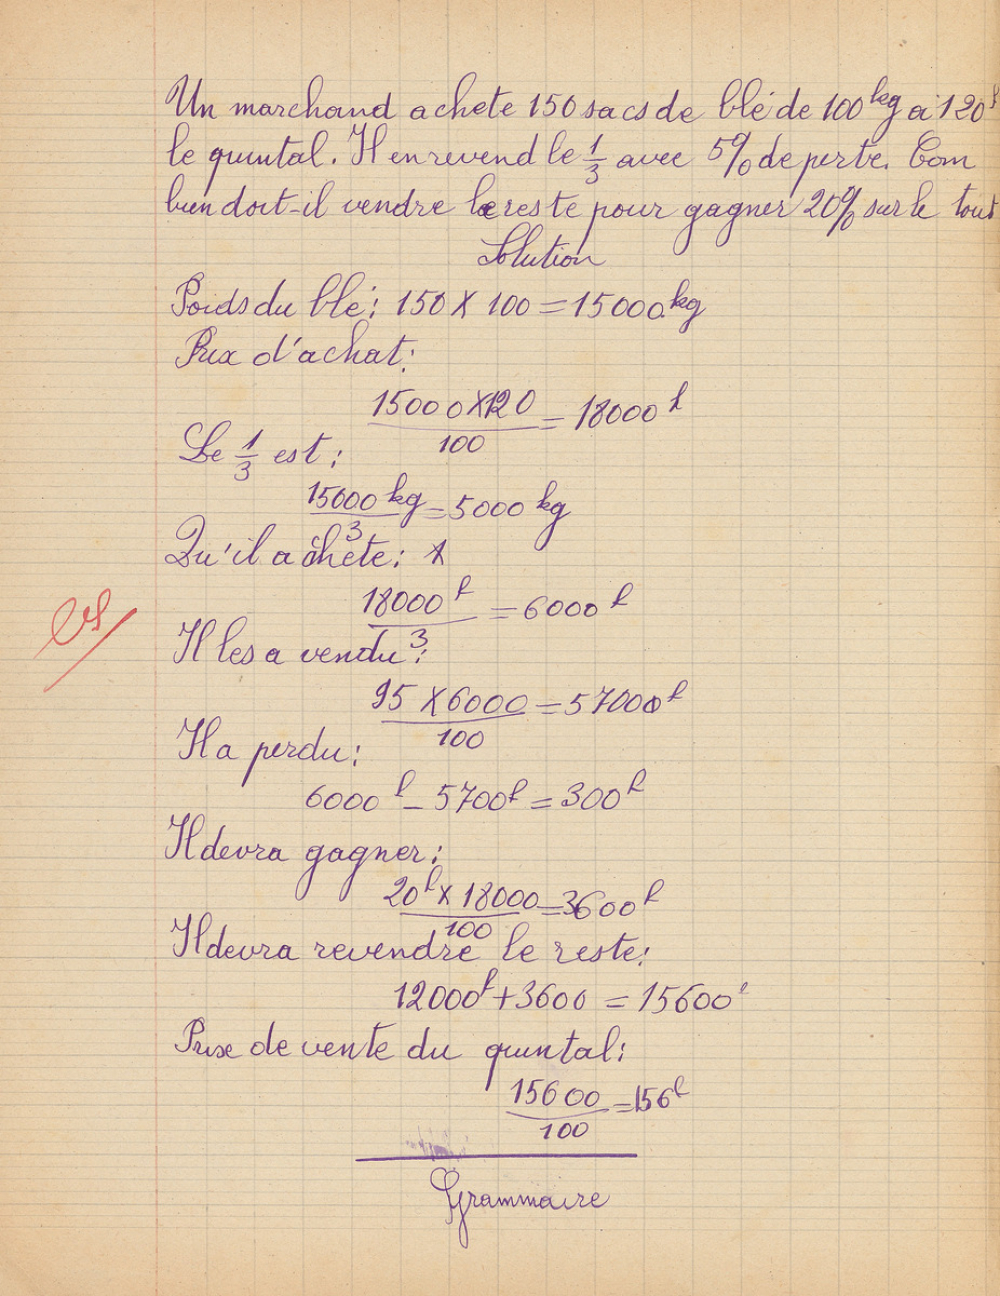 Un marchand achete 150 sacs de blé de 100 kg à 120 f
le quintal. Il en revend le 1/3 avec 5% de perte. Com
bien doit-il vendre le reste pour gagner 20% sur le tout
Solution
Poids du blé: 150 X 100 = 15000 kg
Prix d'achat:
15000 X 120 / 100 = 18000 f
Le 1/3 est:
15000 kg / 3 = 5000 kg
Qu'il a chète:
18000 f / 3 = 6000 f
Il les a vendu:
95 X 6000 / 100 = 57000 f
Il a perdu:
6000 f - 5700 f = 300 f
Il devra gagner:
20 f X 18000 / 100 = 3600 f
Il devra revendre le reste:
12000 f + 3600 = 15600 f
Prix de vente du quintal:
15600 / 100 = 156 f
Grammaire